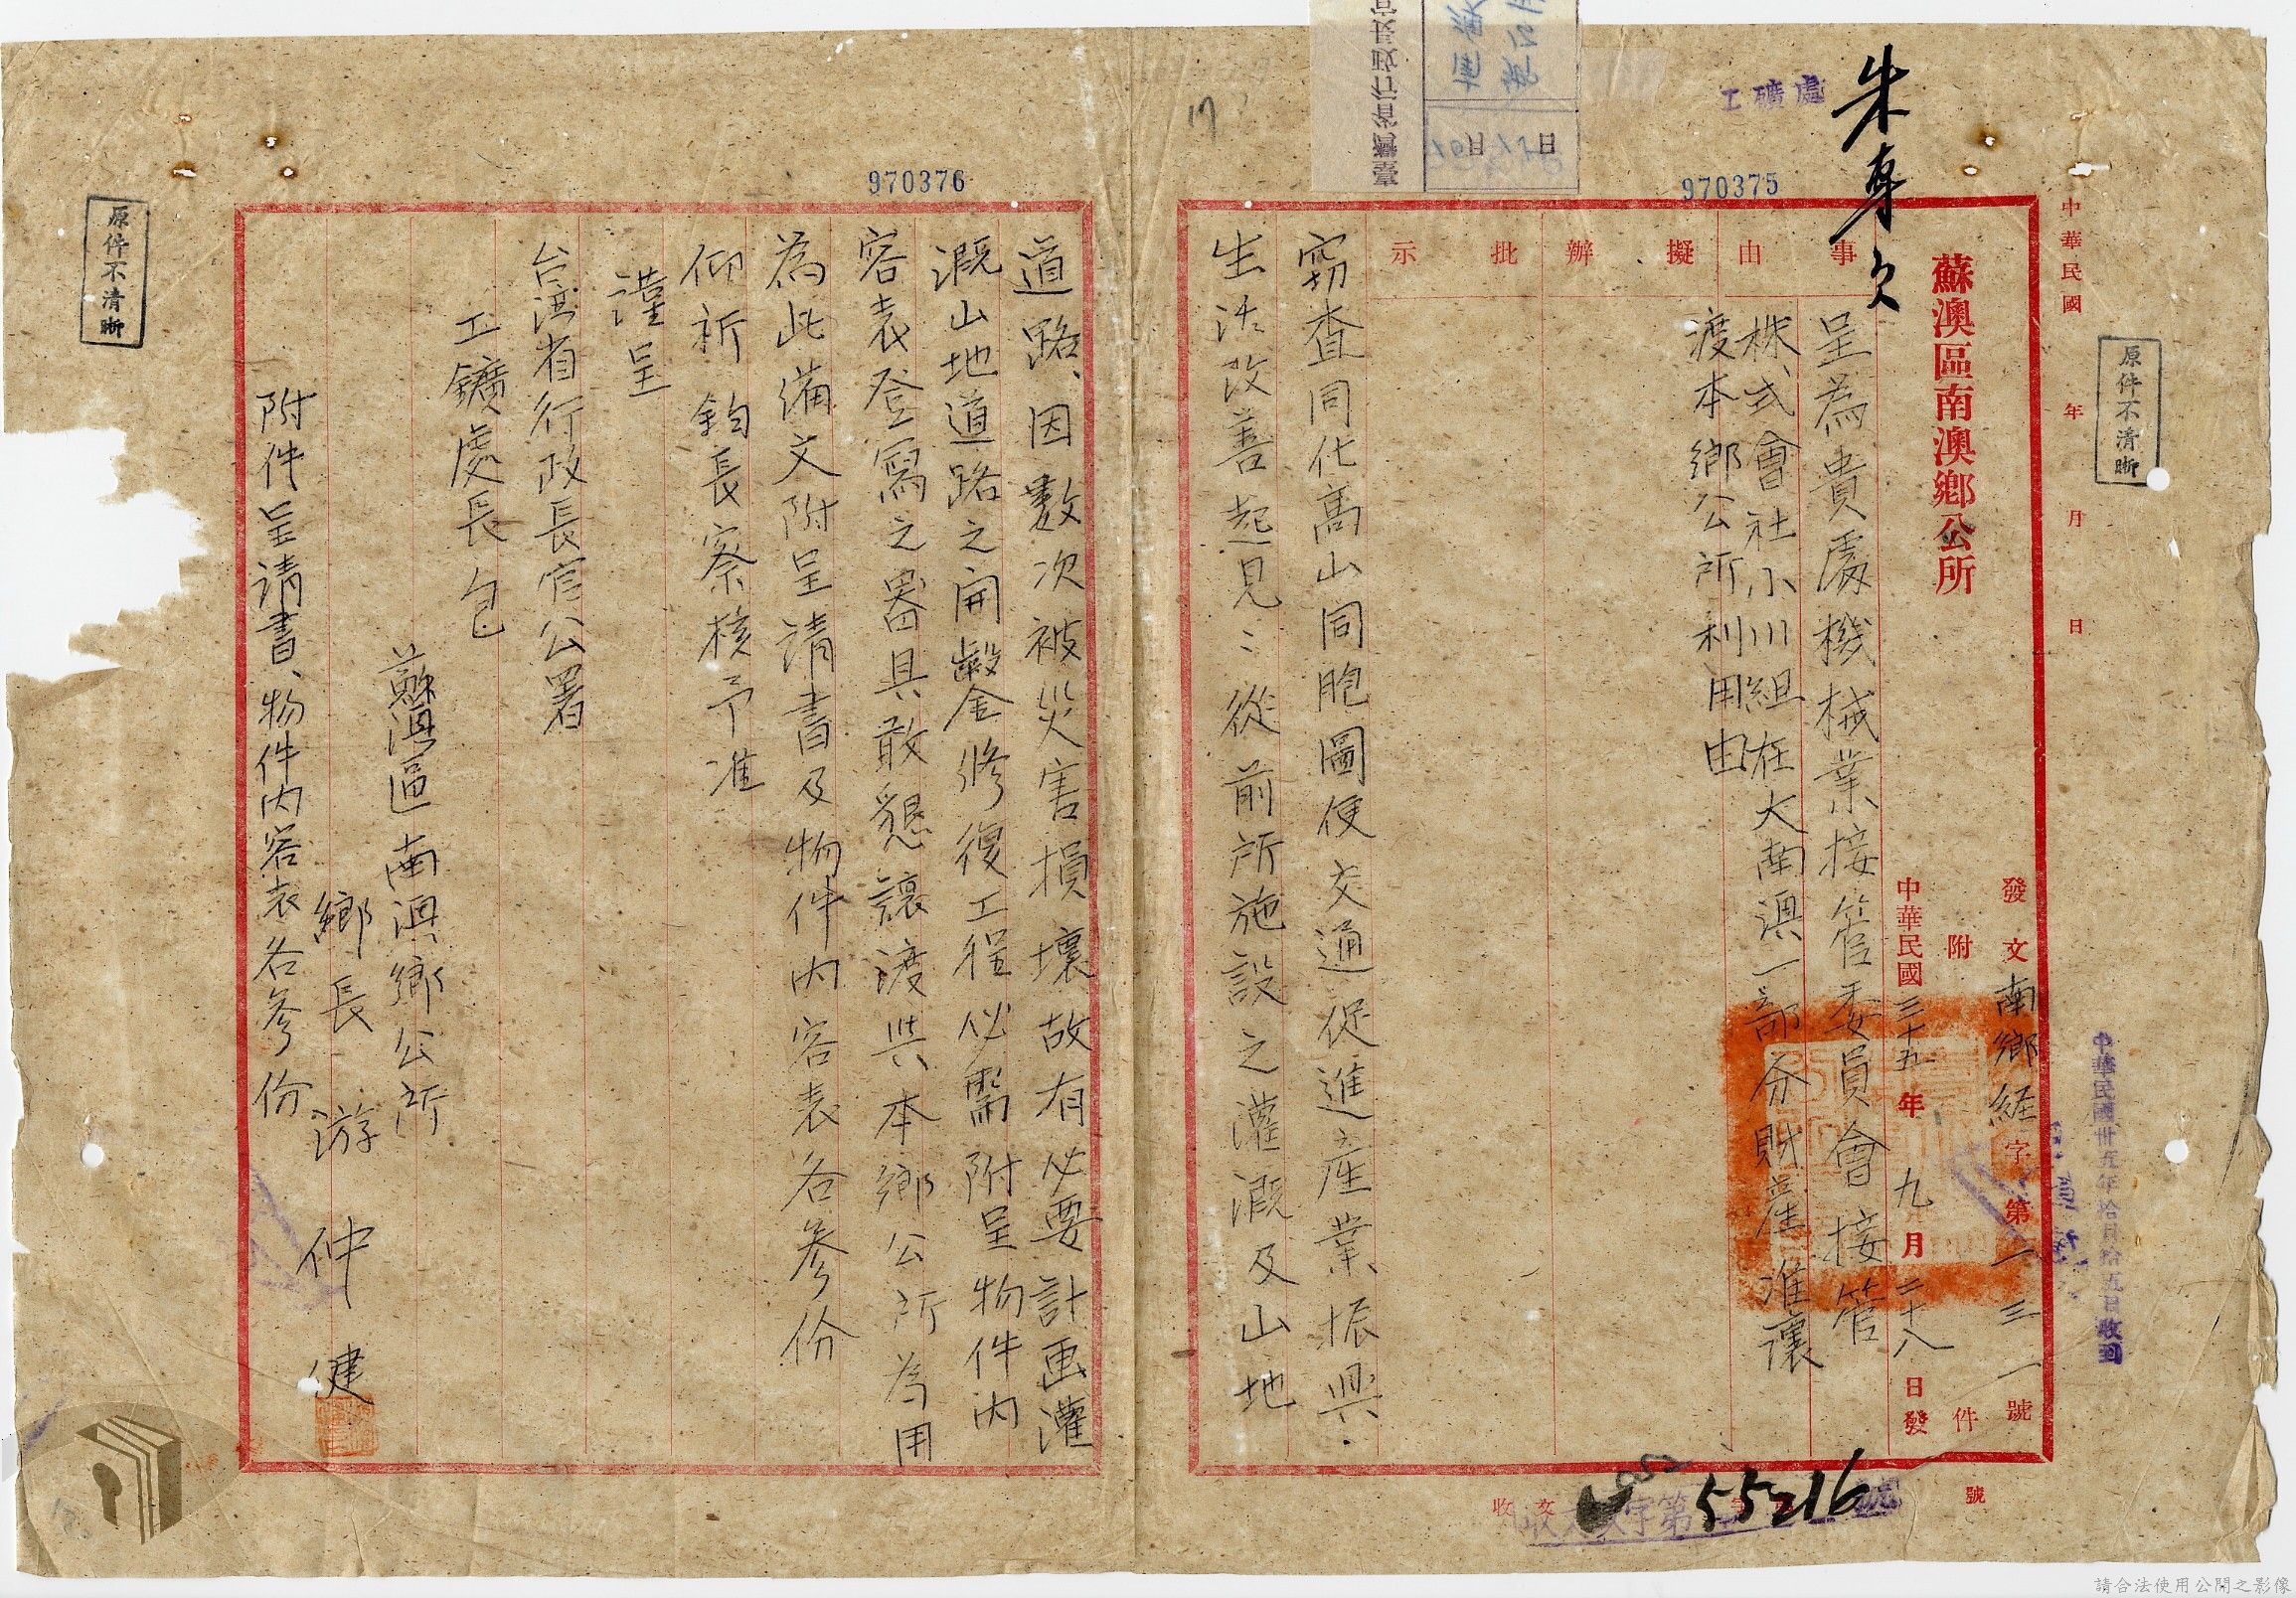 中華民國　年　月　日
原件不清晰
中華民國卅五年拾月拾五日收到
蘇澳區南澳鄉公所
發文南鄉経字第一三一號
附　件
中華民國三十五年九月二十八日發
工礦處
970375
事由
擬辦
批示
呈為貴處機械業接管委員會接管
株式會社小川組在大南澳一部分財產准讓
渡本鄉公所利用由
窃查同化高山同胞圖便交通促進産業振興.
生活改善起見ミ從前所施設之灌溉及山地
收文
字第55216號
17
10月15日
970376
道路、因數次被災害損壞故有必要計画灌
溉山地道路之開鑿修復工程必需附呈物件内
容表登寫之器具敢懇讓渡與本鄉公所為用
為此備文附呈請書及物件内容表各參份
仰祈 鈞長察核予准
謹呈
台湾省行政長官公署
工鑛處長 包
蘇澳區南澳鄉公所
鄉長 游仲健
附件呈请書、物件内容表各參份
原件不清晰
請合法使用公開之影像